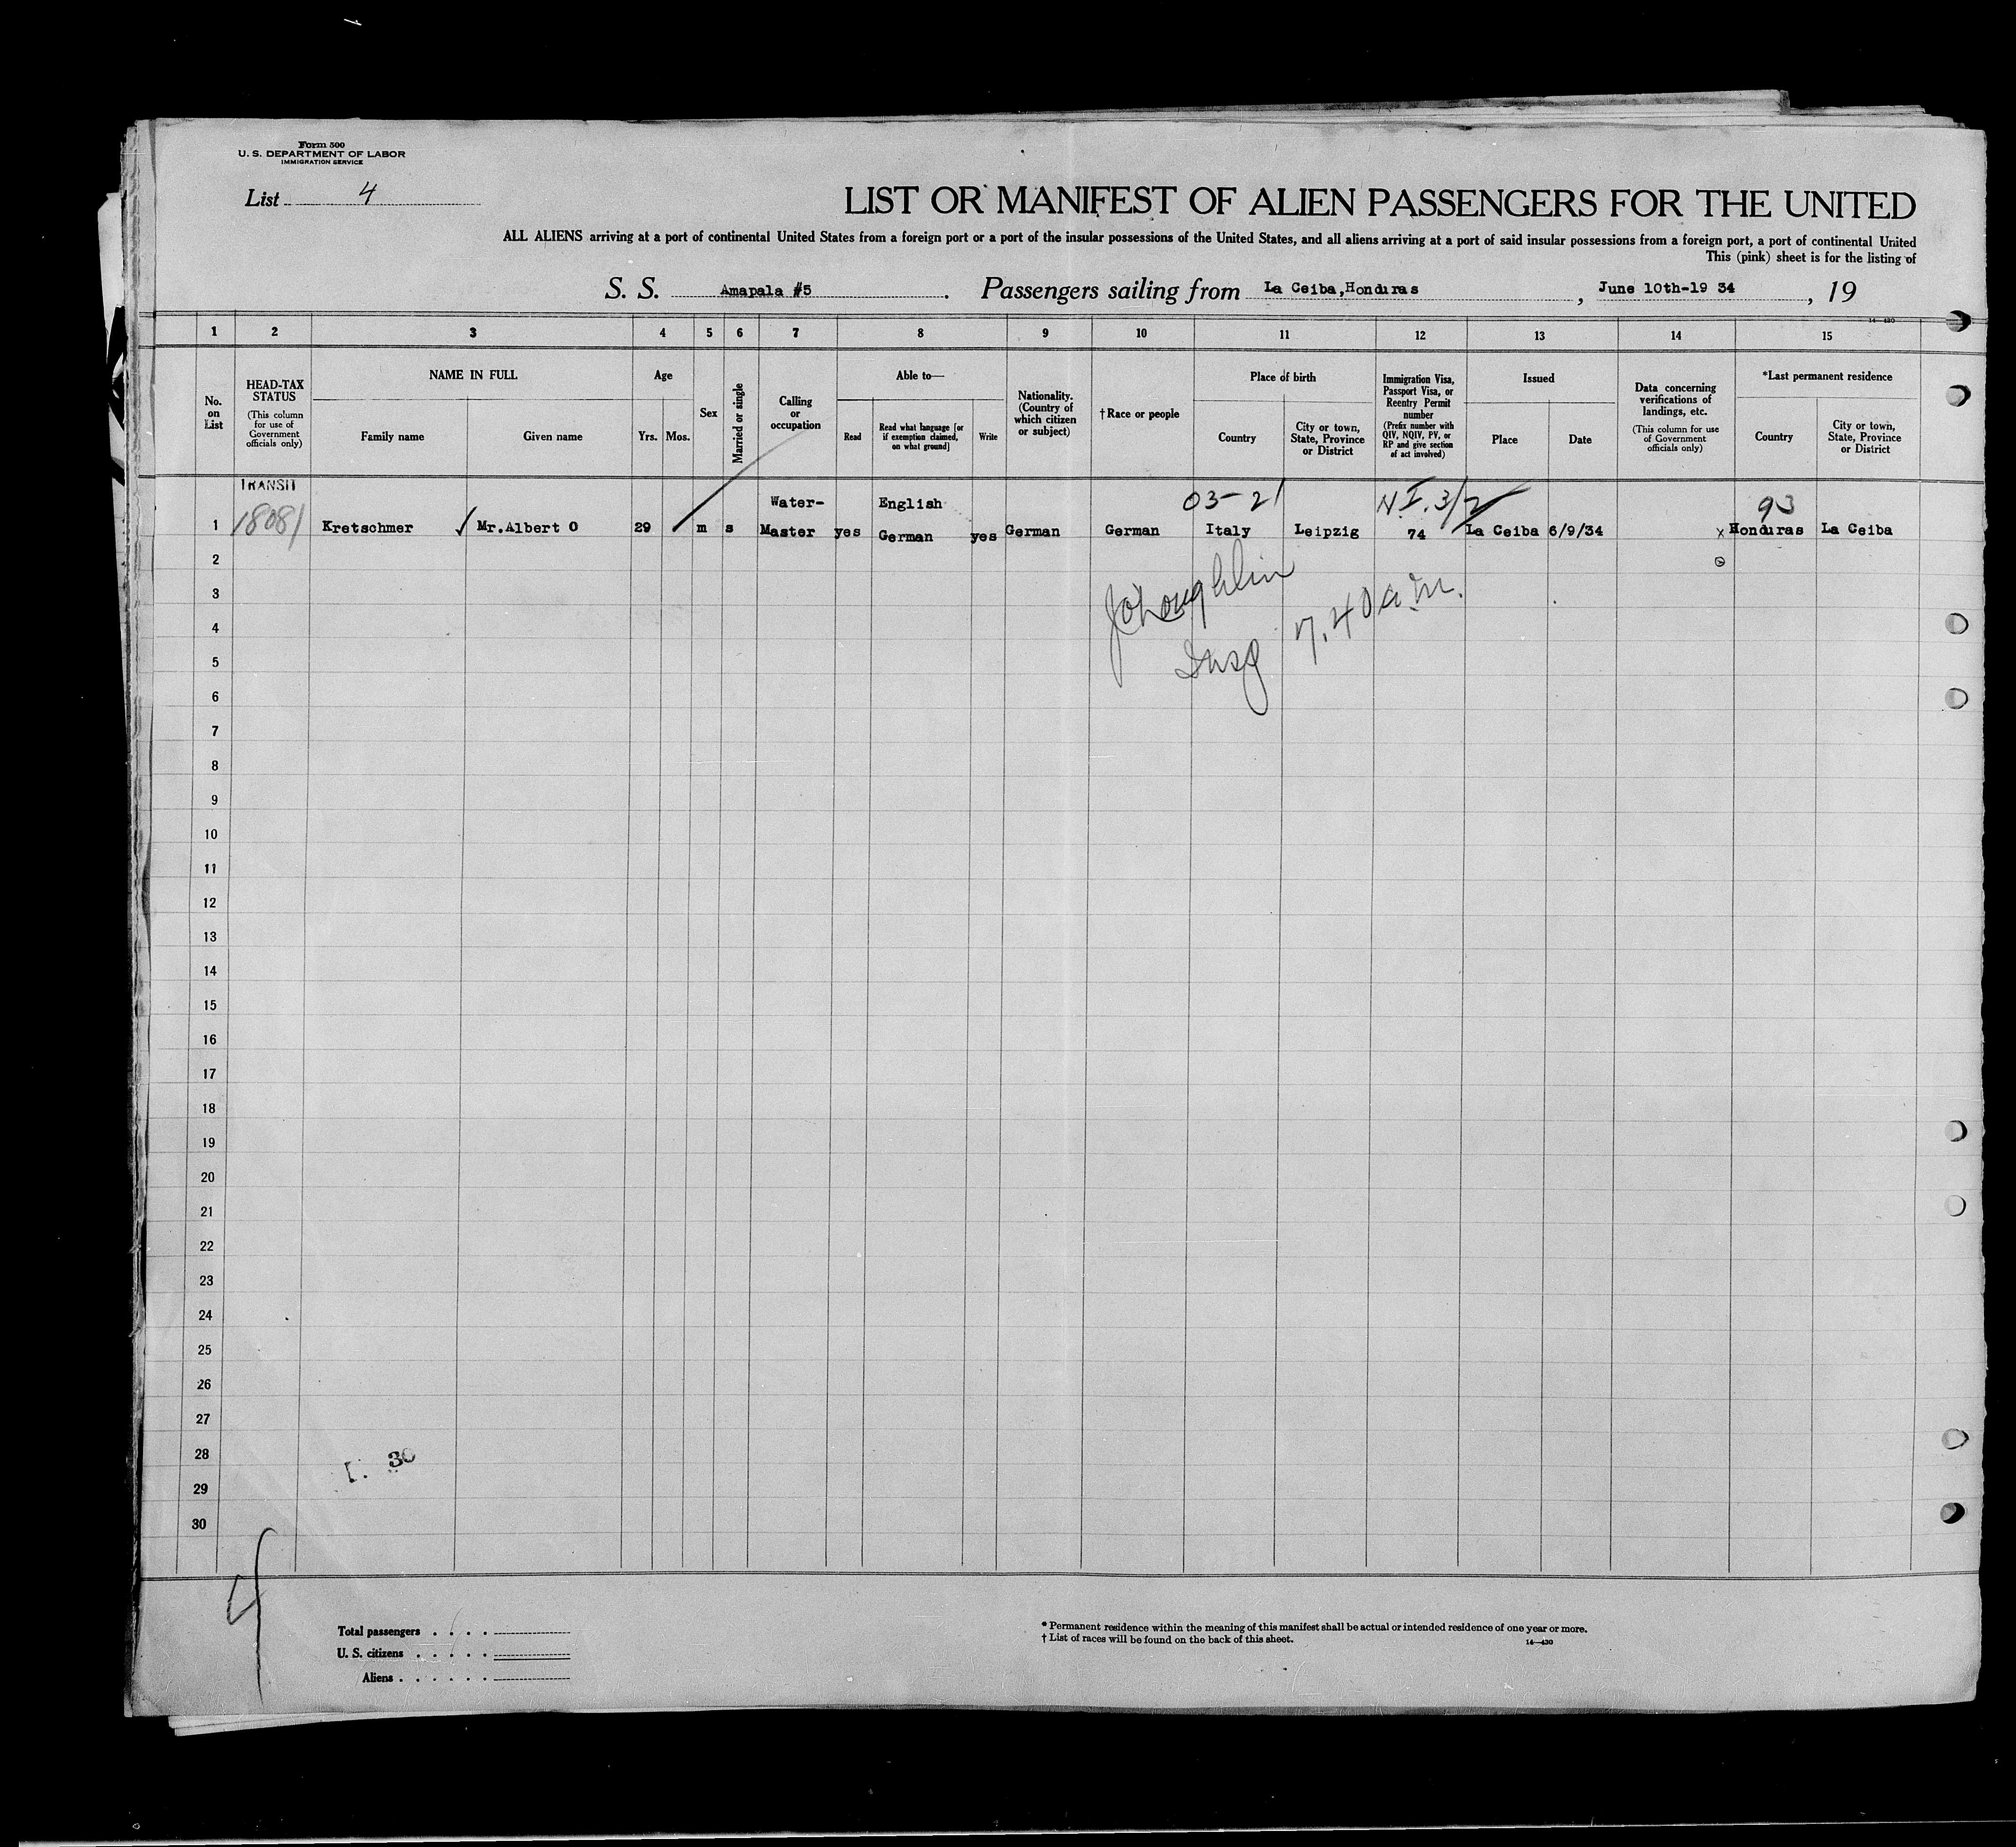 Form 500
U. S. DEPARTMENT OF LABOR
IMMIGRATION SERVICE
List 4
LIST OR MANIFEST OF ALIEN PASSENGERS FOR THE UNITED
ALL ALIENS arriving at a port of continental United States from a foreign port or a port of the insular possessions of the United States, and all aliens arriving at a port of said insular possessions from a foreign port, a port of continental United
This (pink) sheet is for the listing of
S. S. Amapala #5. Passengers sailing from La Ceiba,Honduras, June 10th-19 34, 19
14—430
1 2 3 4 5 6 7 8 9 10 11 12 13 14 15
No. on List
HEAD-TAX STATUS
(This column for use of Government officials only)
NAME IN FULL
Family name
Given name
Age
Yrs.
Mos.
Sex
Married or single
Calling or occupation
Able to—
Read
Read what language [or if exemption claimed, on what ground]
Write
Nationality. (Country of which citizen or subject)
† Race or people
Place of birth
Country
City or town, State, Province or District
Immigration Visa, Passport Visa, or Reentry Permit number
(Prefix number with QIV, NQIV, PV, or RP and give section of act involved)
Issued
Place
Date
Data concerning verifications of landings, etc.
(This column for use of Government officials only)
*Last permanent residence
Country
City or town, State, Province or District
TRANSIT
Water- English 03-21 N.I. 3/2 93
1 18081 Kretschmer ✓ Mr.Albert O 29 m s Master yes German yes German German Italy Leipzig 74 La Ceiba 6/9/34 x Honduras La Ceiba
2
3
4
7.40 a.m.
5
Insp
6
7
8
9
10
11
12
13
14
15
16
17
18
19
20
21
22
23
24
25
26
27
28
30
29
30
4
Total passengers
U. S. citizens
Aliens
* Permanent residence within the meaning of this manifest shall be actual or intended residence of one year or more.
† List of races will be found on the back of this sheet.
14—430